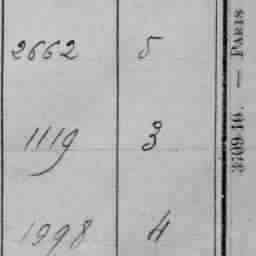 2662 5
1119 3
1998 4
3709/10. — PARIS